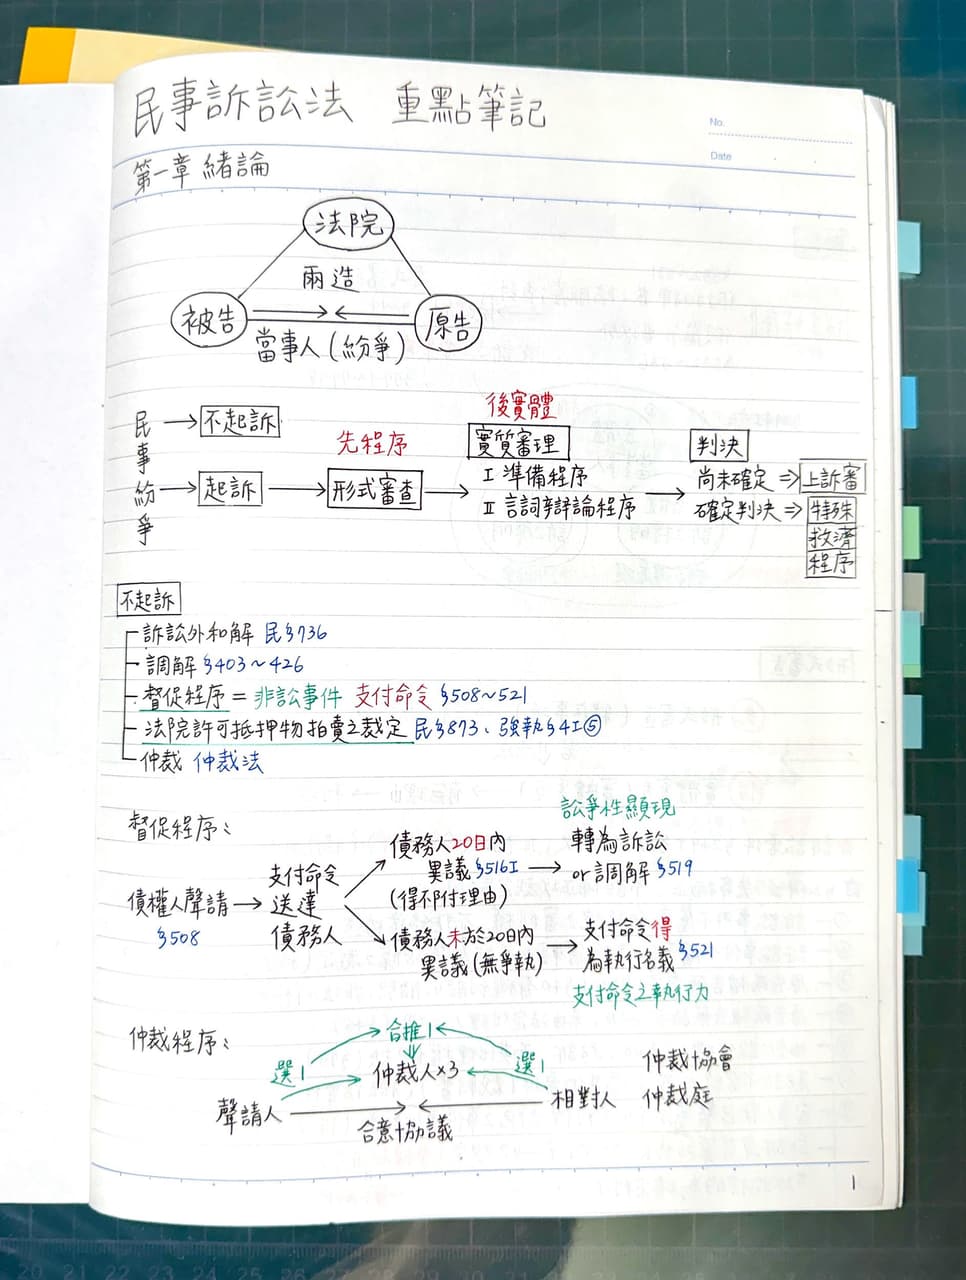 民事訴訟法 重點筆記
No.
Date
第一章 緒論
法院
兩造
被告
原告
當事人(紛爭)
民事紛爭
不起訴
起訴
先程序
形式審查
後實體
實質審理
I 準備程序
II 言詞辯論程序
判決
尚未確定 ⇒ 上訴審
確定判決 ⇒ 特殊
救濟
程序
不起訴
訴訟外和解 民§736
調解 §403~426
督促程序 = 非訟事件 支付命令 §508~521
法院許可抵押物拍賣之裁定 民§873、強執§4I⑤
仲裁 仲裁法
督促程序:
債權人聲請 →
§508
支付命令
送達
債務人
債務人20日內
異議§516I
(得不附理由)
訟爭性顯現
→ 轉為訴訟
or調解 §519
債務人未於20日內
異議(無爭執)
→ 支付命令得
為執行名義 §521
支付命令之執行力
仲裁程序:
合推1
選1
仲裁人×3
選1
聲請人
相對人
合意協議
仲裁協會
仲裁庭
1
20 21 22 23 24 25 26